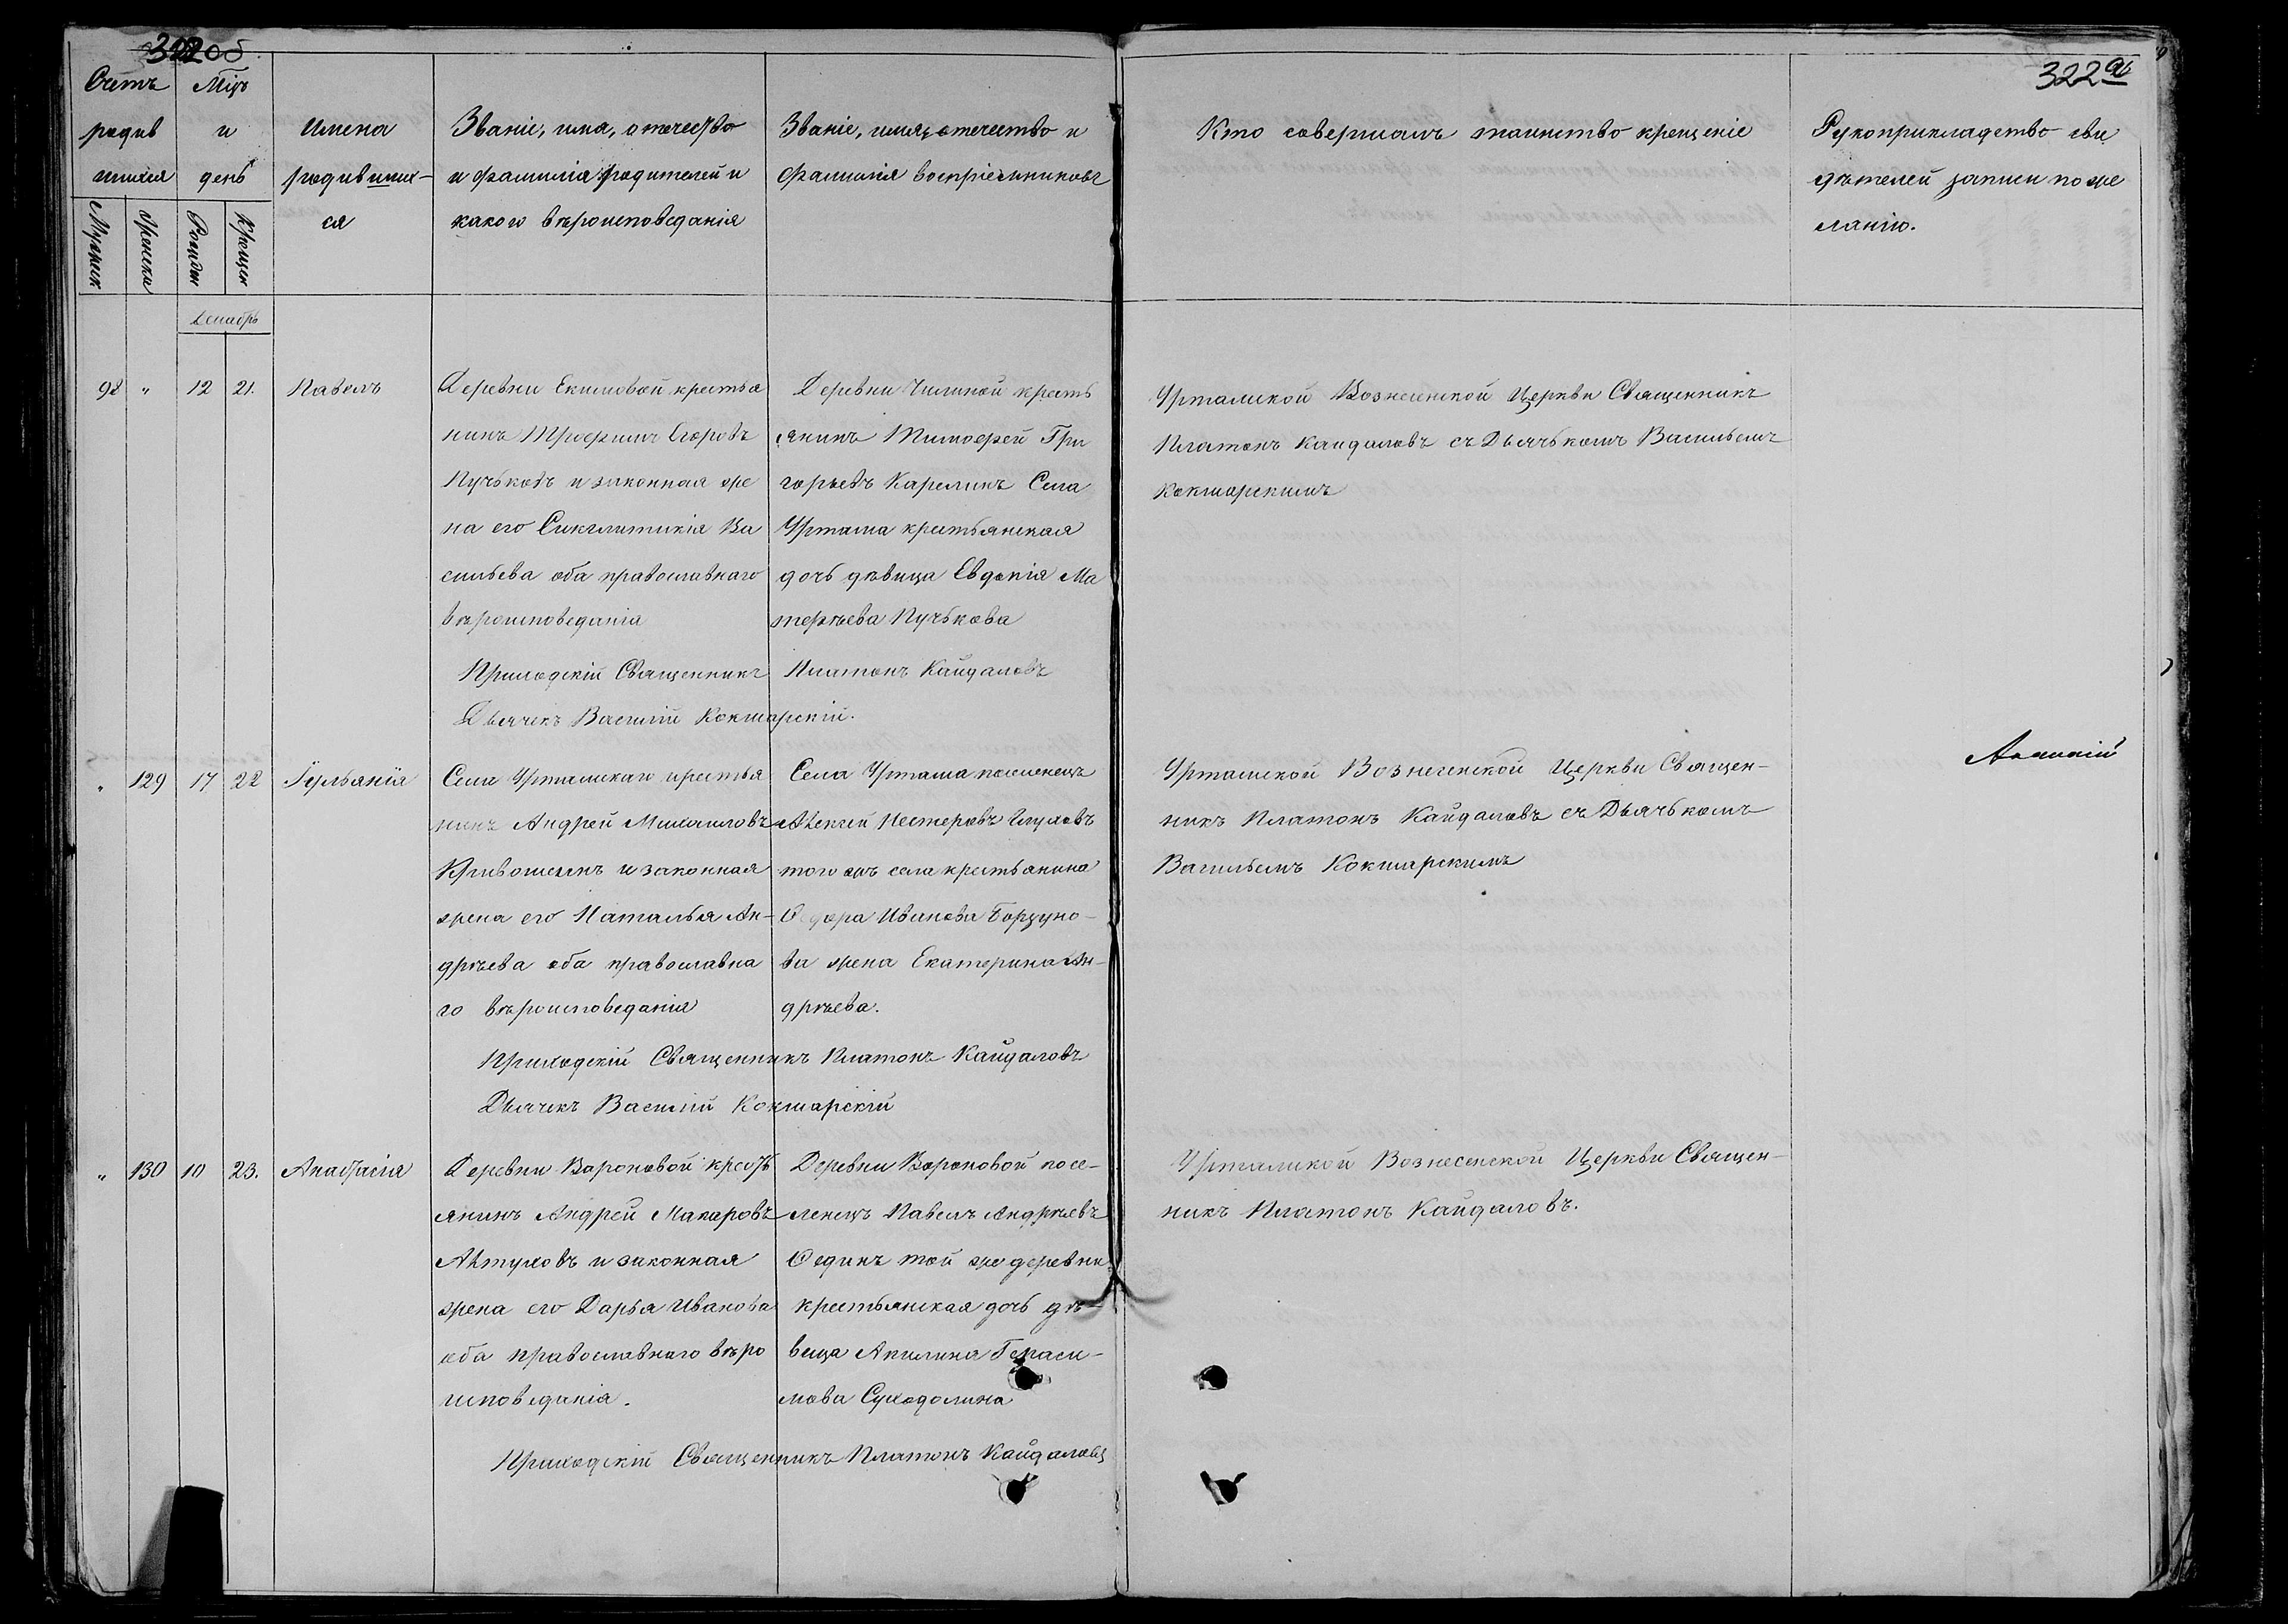 322 об.
322 а
Счетъ
родив
шихся
Мужеск
Женска
Мцъ
и
день
Рожден
Крещен
Имена
родивших-
ся
Званіе, имя, отечество
и фамилія родителей и
какого вѣроисповеданія
Званіе, имя, отечество и
фамилія воспріемниковъ
Кто совершалъ таинство крещеніе
Рукоприкладство сви
дѣтелей записи по же
ланію.
Декабрь
98 " 12 21. Павелъ
Деревни Екимовой крестья
нинъ Трофимъ Егоровъ
Пучьковъ и законная же
на его Синклитикія Ва
сильева оба православнаго
вѣроисповеданія
Деревни Чилиной кресть
янинъ Тимофей Гри
горьевъ Карелинъ Села
Уртама крестьянская
дочь дѣвица Евдокія Ма
тфѣева Пучькова
Уртамской Вознесенской Церкви Священникъ
Платонъ Кайдаловъ съ Дьячькомъ Васильемъ
Кокшарскимъ
Приходскій Священникъ Платонъ Кайдаловъ
Дьячекъ Василій Кокшарскій.
" 129 17 22 Іульянія
Села Уртамскаго крестья
нинъ Андрей Михаиловъ
Кривошеинъ и законная
жена его Наталья Ан-
дрѣева оба православна
го вѣроисповеданія
Села Уртама поселенецъ
Алексей Нестеровъ Глуховъ
того жъ села крестьянина
Федора Иванова Борзуно-
ва жена Екатерина Ан-
дрѣева.
Уртамской Вознесенской Церкви Священ-
никъ Платонъ Кайдаловъ съ Дьячькомъ
Васильемъ Кокшарскимъ
Приходскій Священникъ Платонъ Кайдаловъ
Дьячекъ Василій Кокшарскій
" 130 10 23. Анастасія
Деревни Вороновой кресть
янинъ Андрей Макаровъ
Ахтуховъ и законная
жена его Дарья Иванова
оба православнаго вѣро
исповеданія.
Деревни Вороновой посе-
ленецъ Павелъ Андрѣевъ
Фединъ той же деревни
крестьянская дочь дѣ-
вица Акилина Гераси-
мова Суходолина
Уртамской Вознесенской Церкви Священ-
никъ Платонъ Кайдаловъ.
Приходскій Священникъ Платонъ Кайдаловъ